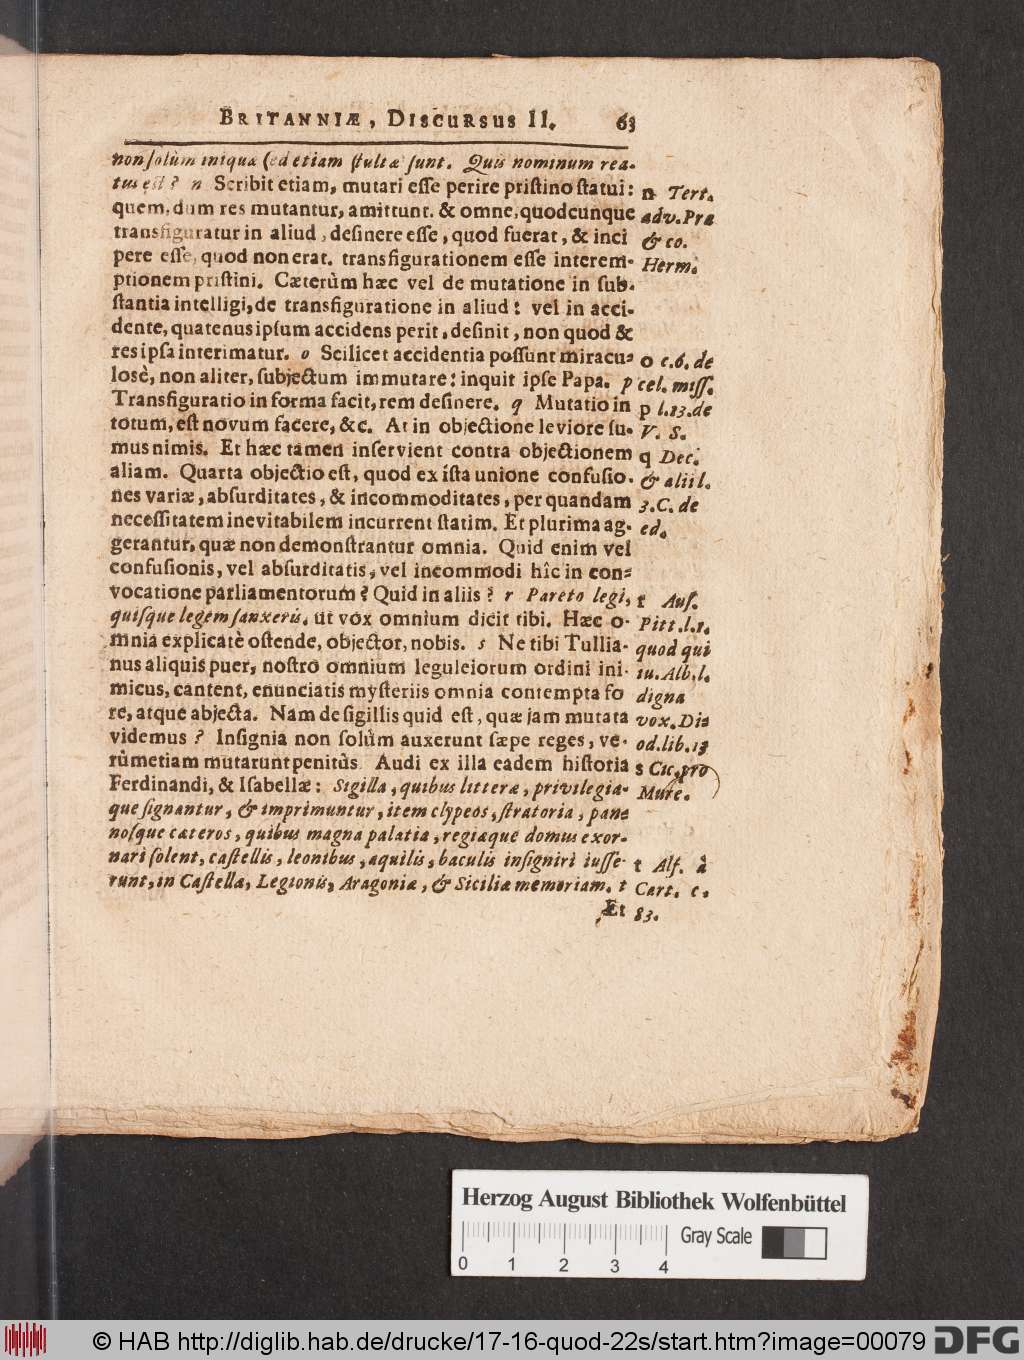 BRITANNIÆ, DISCURSUS II. 63
non solùm iniquæ sed etiam stultæ sunt. Quis nominum rea-
tus est? n Scribit etiam, mutari esse perire pristino statui:
quem, dum res mutantur, amittunt. & omne, quodcunque
transfiguratur in aliud, desinere esse, quod fuerat, & inci
pere esse, quod non erat. transfigurationem esse interem-
ptionem pristini. Cæterùm hæc vel de mutatione in sub-
stantia intelligi, de transfiguratione in aliud: vel in acci-
dente, quatenus ipsum accidens perit, desinit, non quod &
res ipsa interimatur. o Scilicet accidentia possunt miracu-
losè, non aliter, subjectum immutare: inquit ipse Papa. p
Transfiguratio in forma facit, rem desinere. q Mutatio in
totum, est novum facere, &c. At in objectione leviore su-
mus nimis. Et hæc tamen inservient contra objectionem
aliam. Quarta objectio est, quod ex ista unione confusio-
nes variæ, absurditates, & incommoditates, per quandam
necessitatem inevitabilem incurrent statim. Et plurima ag-
gerantur, quæ non demonstrantur omnia. Quid enim vel
confusionis, vel absurditatis, vel incommodi hîc in con-
vocatione parliamentorum? Quid in aliis? r Pareto legi,
quisque legem sanxeris. ut vox omnium dicit tibi. Hæc o-
mnia explicatè ostende, objector, nobis. s Ne tibi Tullia-
nus aliquis puer, nostro omnium leguleiorum ordini ini-
micus, cantent, enunciatis mysteriis omnia contempta fo
re, atque abjecta. Nam de sigillis quid est, quæ jam mutata
videmus? Insignia non solùm auxerunt sæpe reges, ve-
rùm etiam mutarunt penitùs. Audi ex illa eadem historia
Ferdinandi, & Isabellæ: Sigilla, quibus litteræ, privilegia-
que signantur, & imprimuntur, item clypeos, stratoria, pan-
nosque cæteros, quibus magna palatia, regiaque domus exor-
nari solent, castellis, leonibus, aquilis, baculis insigniri jusse-
runt, in Castellæ, Legionis, Aragoniæ, & Siciliæ memoriam. t
Et
n Tert.
adv. Pra
& co.
Herm.
o c. 6. de
cel. miss.
p l. 83. de
V. S.
q Dec.
& alii l.
3. C. de
ed.
r Aus.
Pitt. l. 1.
quod qui
iu. Alb. l.
digna
vox. Di-
od. lib. 13
s Cic. pro
Mure.
t Alf. à
Cart. c.
83.
Herzog August Bibliothek Wolfenbüttel
Gray Scale
0 1 2 3 4
© HAB http://diglib.hab.de/drucke/17-16-quod-22s/start.htm?image=00079 DFG